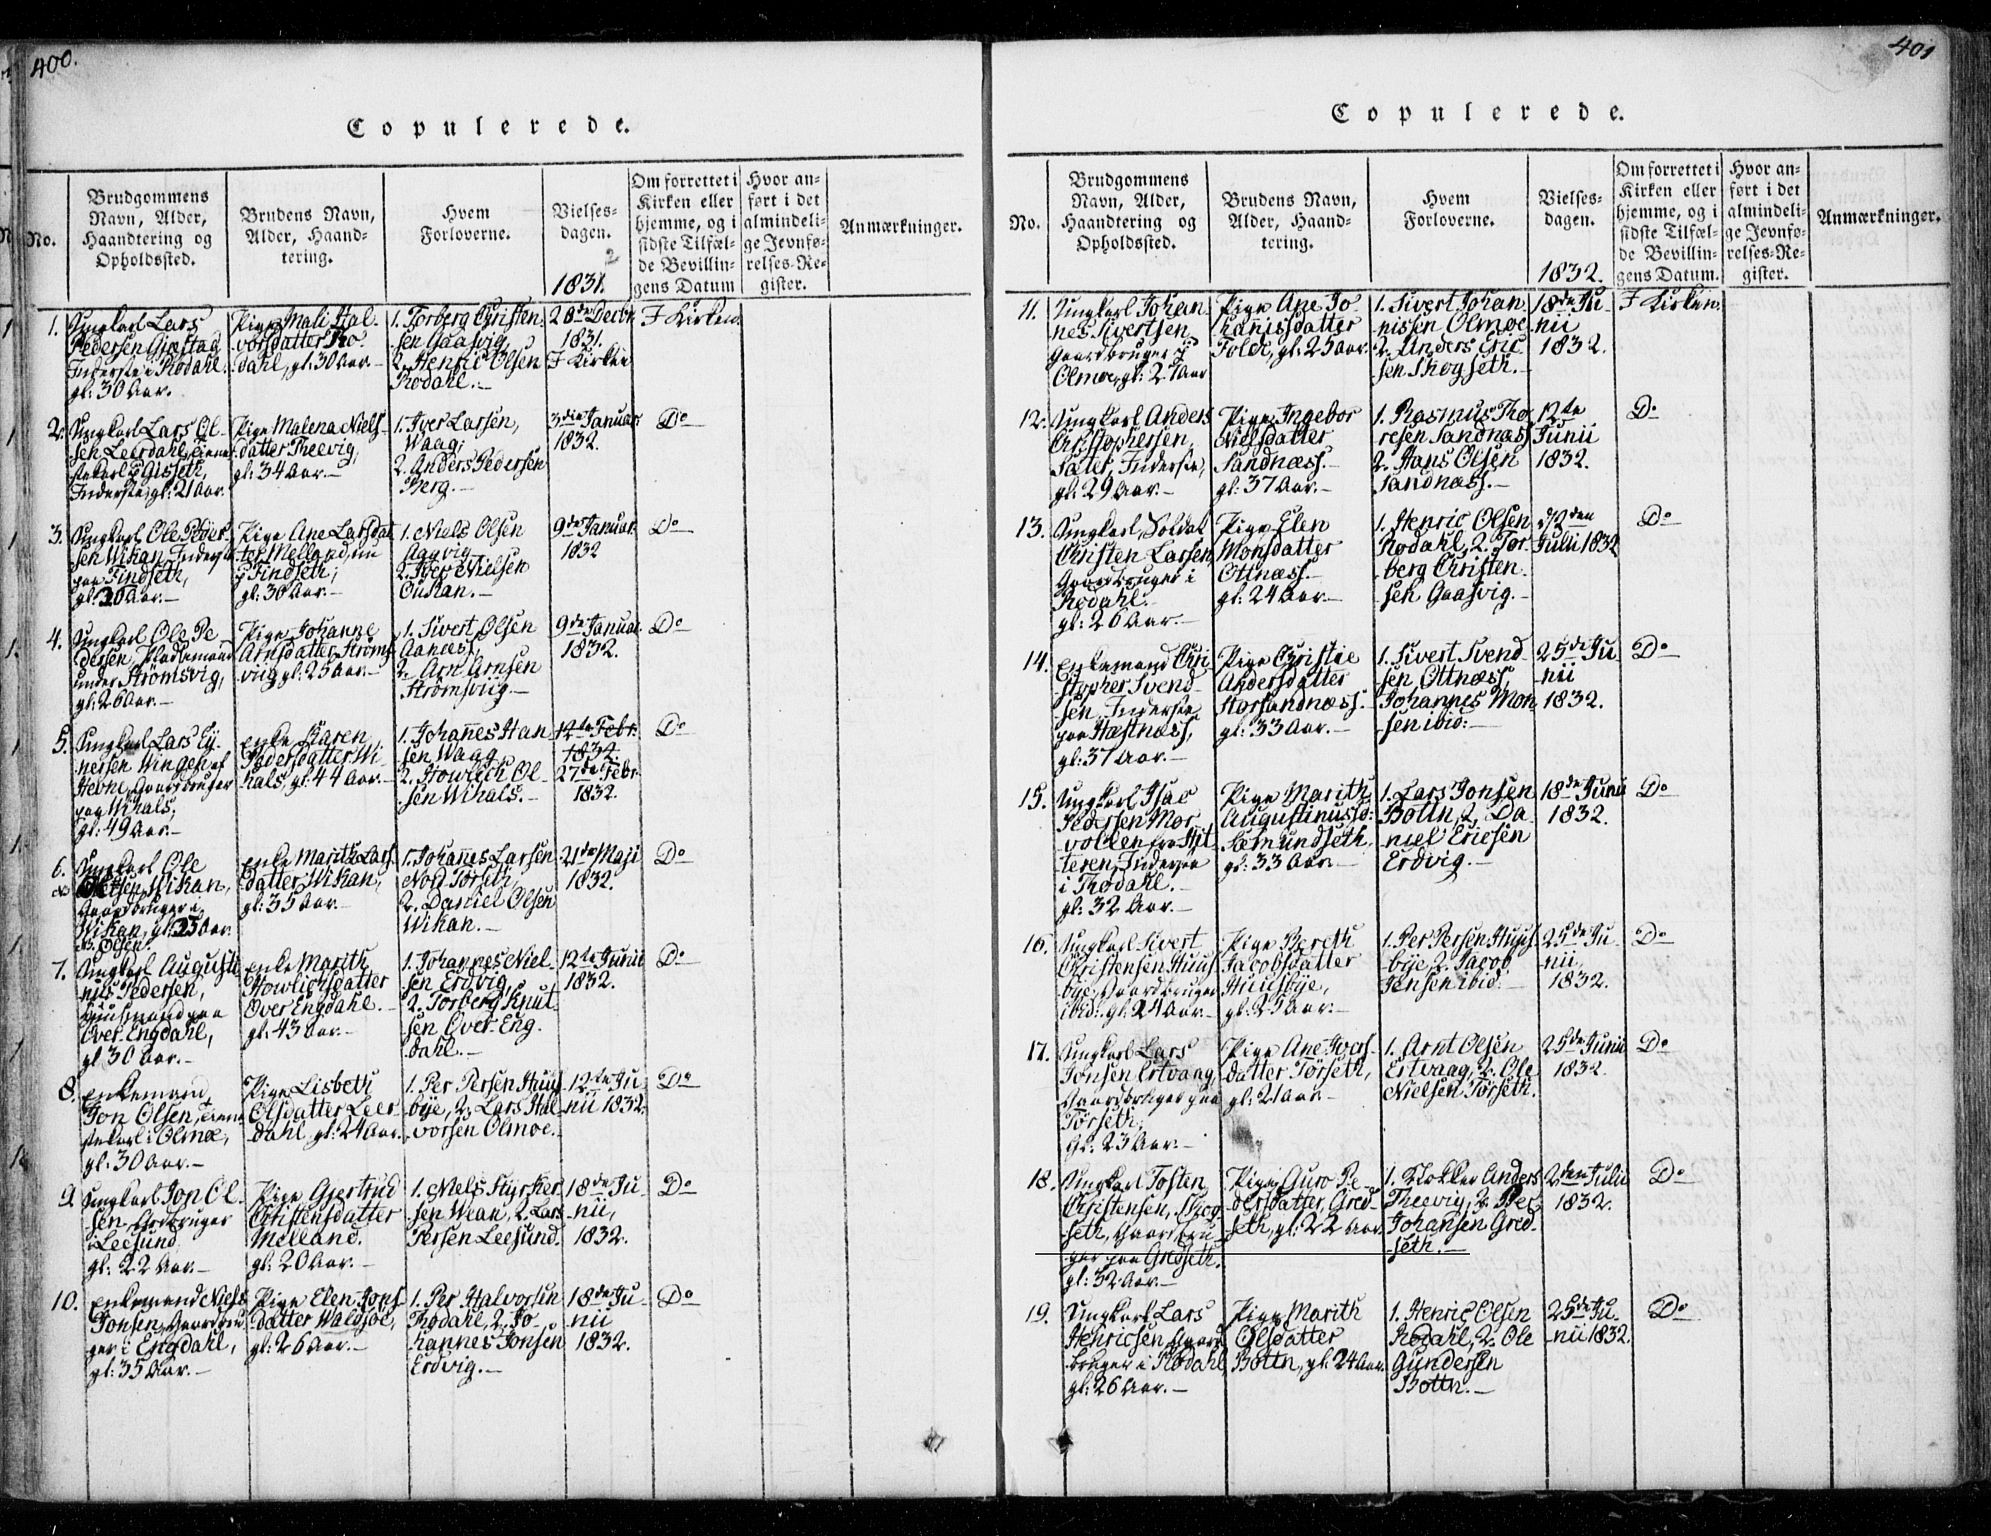 400.
Copulerede.
No.
Brudgommens
Navn, Alder,
Haandtering og
Opholdssted.
Brudens Navn,
Alder, Haand-
tering.
Hvem
Forloverne.
Vielses-
dagen.
1831.
Om forrettet i
Kirken eller
hjemme, og i
sidste Tilfæl-
de Bevillin-
gens Datum
Hvor an-
ført i det
almindeli-
ge Jevnfø-
relses-Re-
gister.
Anmærkninger.
1.
Ungkarl Lars
Pedersen
Inderste i Rodahl.
gl: 30 Aar.
Pige Mali Hal-
vorsdatter Ro-
dahl, gl: 30 Aar.
1. Torberg Christen-
sen Gaasvig,
2. Henric Olsen
Rodahl.
28de Decbr
1831.
I Kirken
I Kirken.
2.
Ungkarl Lars Ol-
sen Leerdahl, tiene-
stekarl i Gisseth,
Inderste, gl: 21 Aar.
Pige Malena Niels-
datter Theevig,
gl: 34 Aar.
1. Iver Larsen,
Waag,
2. Anders Pedersen
Berg.
3die Januar
1832.
Do
3.
Ungkarl Ole
sen Wikan, Inderste
paa Findseth,
gl: 20 Aar.
Pige Ane Larsdat-
ter Melland, nu
i Findseth,
gl: 30 Aar.
1. Niels Olsen
Aagvig
2. Iver Nielsen
Oukan.
9de Januar
1832
Do
4.
Ungkarl Ole Pe-
dersen, Pladsemand
under Strømsvig,
gl: 26 Aar.
Pige Johanne
Arnsdatter Strøms-
vug gl: 25 Aar.
1. Sivert Olsen
Aanæss,
2. Arn Arnsen
Strømsvug.
9de Januar.
1832.
Do
5.
Ungkarl Lars Ey-
nersen Wingen af
Hevne, Gaardbruger
paa Wihals,
gl: 49 Aar.
enke Karen
Pedersdatter Wi-
hals, gl: 44 Aar.
1. Johañes Han-
sen Waag,
2. Howlich Ol-
sen Wihals.
14te Febr.
1832.
27de Febr.
1832.
Do
6.
Ungkarl Ole
Wikan,
Gaardbruger i
Wikan, gl: 25 Aar.
Olsen.
enke Marith Lars-
datter Wikan,
gl: 35 Aar.
1. Johañes Larsen
Nord Torseth,
2. Daniel Olsen
Wikan.
21de Maji
1832.
Do
7.
Ungkarl Augusti-
nus Pedersen,
Huusmand paa
Over Engdahl,
gl 30 Aar.
enke Marith
Howlichsdatter
Over Engdahl.
gl: 43 Aar.
1. Johannes Niel-
sen Erdvig,
2. Torberg Knut-
sen Over Eng-
dahl.
12te Junii
1832.
Do
8.
Enkemand
Jon Olsen, tiene-
stekarl i Olmøe,
gl: 30 Aar.
Pige Lisbeth
Olsdatter Leer-
dahl, gl: 24 Aar.
1. Per Persen Huus-
bye, 2. Lars Hal-
vorsen Olmøe.
12te Ju-
nii 1832.
Do
9.
Ungkarl Jon Ol-
sen, Grdbruger
i Leesund
gl: 22 Aar.
Pige Gjertrud
Christensdatter
Melland.
gl: 20 Aar.
1. Niels Styrker-
sen Wean, 2. Lars
Persen Leesund.
18de Ju-
nii,
1832.
Do
10.
Enkemand Niels
Jonsen, Gaardbru-
ger i Engdahl,
gl: 35 Aar.
Pige Elen Jons-
datter Waldsøe,
gl: 26 Aar.
1. Per Halvorsen
Rodahl, 2. Jo-
hannes Jonsen
Erdvig.
18de Ju-
nii
1832.
Do
401
Copulerede.
No.
Brudgommens
Navn, Alder,
Haandtering og
Opholdssted.
Brudens Navn,
Alder, Haand-
tering.
Hvem
Forloverne.
Vielses-
dagen.
1832.
Om forrettet i
Kirken eller
hjemme, og i
sidste Tilfæl-
de Bevillin-
gens Datum.
Hvor an-
ført i det
almindeli-
ge Jevnfø-
relses-Re-
gister.
Anmærkninger.
11.
Ungkarl Johan-
nes Sivertsen,
Gaardbruger i
Olmøe, gl: 27 Aar
Pige Ane Jo-
hanisdatter
Tolde, gl: 25 Aar.
1. Sivert Johan-
nissen Olmøe
2. Anders Eric-
sen Skogseth.
18de Ju-
nii
1832.
I Kirken.
12.
Ungkarl Anders
Christophersen,
Sater, Inderste,
gl: 29 Aar.
Pige Ingebor
Nielsdatter
Sandnæss.
gl: 37 Aar.
1. Rasmus Tho-
resen Sandnæss
2. Hans Olsen
Sandnæss.
12te
Junii
1832.
Do
13.
Ungkarl Soldat
Christen Larsen,
Gaardbruger i
Rodahl.
gl: 26 Aar.
Pige Elen
Monsdatter
Ottnæss.
gl: 24 Aar.
1. Henric Olsen
Rodahl, 2. Tor-
berg Christen-
sen Gaasvig.
2den
Julii 1832
Do
14.
Enkemand Chri-
stopher Svend-
sen, Inderste
paa Hæstnæss,
gl: 37 Aar.
Pige Christie
Andersdatter
Storsandnæss.
gl: 33 Aar.
1. Sivert Svend-
sen, Ottnæss,
Johannes Mon-
sen ibid:
25de Ju-
nii
1832.
Do
15.
Ungkarl Isac
Pedersen Mor-
volden fra Hit-
teren, Inderste
i Rodahl.
gl: 32 Aar.
Pige Marith
Augustinusd:
Sæmundseth.
gl: 33 Aar.
1. Lars Jonsen
Bottn, 2. Da-
niel Ericsen
Erdvig.
18de Junii
1832.
Do
16.
Ungkarl Sivert
Christensen Huus-
bye, Gaardbruger
ibid:, gl: 24 Aar.
Pige Bereth
Jacobsdatter
Huusbye,
gl: 25 Aar.
1. Per Persen Huus-
bye, 2. Jacob
Jensen ibid:
25de Ju-
nii,
1832.
Do
17.
Ungkarl Lars
Jonsen Ertvaag,
Gaardbruger paa
Torseth,
gl: 23 Aar.
Pige Ane Ivers-
datter Torseth,
gl: 21 Aar.
1. Arnt Olsen
Ertvaag, 2. Ole
Nielsen Torseth.
25de Junii
1832.
Do
18.
Ungkarl Tosten
Christensen, Skog-
seth, Gaardbru-
ger paa Gredseth.
gl: 32 Aar.
Pige Guro Pe-
dersdatter, Gred-
seth, gl: 22 Aar.
1. Klokker Anders
Theevig, 2. Per
Johansen Gred-
seth.
2den Julii
1832.
Do
19.
Ungkarl Lars
Henricsen, Gaard-
bruger i Rodahl,
gl: 26 Aar.
Pige Marith
Olsdatter
Bottn, gl: 24 Aar.
1. Henric Olsen
Rodahl, 2. Ole
Gundersen
Bottn.
25de Ju-
nii 1832.
Do